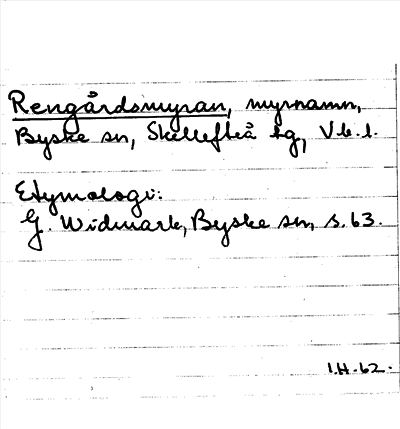 Rengårdsmyran, myrnamn,
Byske sn, Skellefteå tg, Vb. l.
Etymologi:
G. Widmark, Byske sn, s. 63.
I.H.-62.